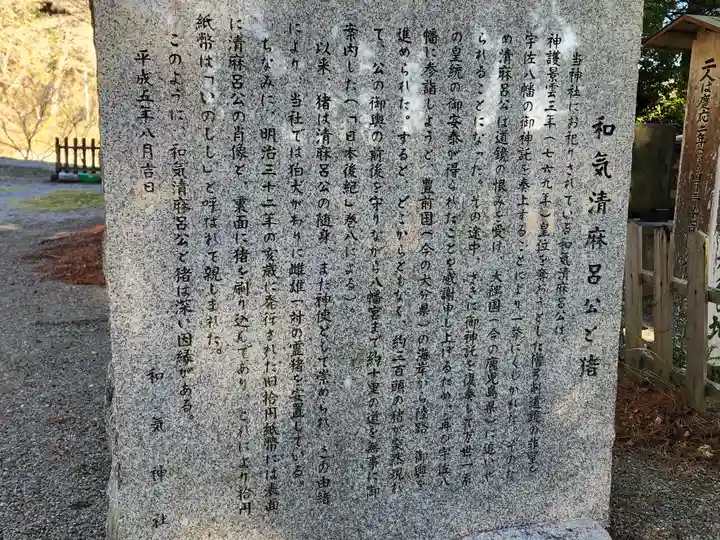 和気清麻呂公と猪
当神社にお祀りされている和気清麻呂公は
神護景雲三年(七六九年)皇位を奪わんとした怪僧弓削道鏡の非望を
宇佐八幡の御神託を奏上することにより一挙にくじかれた。そのた
め清麻呂公は道鏡の恨みを受け、大隅国(今の鹿児島県)に追いや
られることになった。その途中、さきに御神託を復奏し万世一系
の皇統の御安泰が得られたことを感謝申し上げるため、再び宇佐八
幡に参詣しようと、豊前国(今の大分県)の海岸から陸路、御輿を
進められた。すると、どこからともなく、約三百頭の猪が突然現わ
れて、公の御輿の前後を守りながら八幡宮まで約十里の道を無事に御
案内した(「日本後紀」巻八による)。
以来、猪は清麻呂公の随身、また神使として崇められ、この由緒
により、当社では狛犬がわりに雌雄一対の霊猪を安置している。
ちなみに、明治三十二年の亥歳に発行された旧拾円紙幣には表面
に清麻呂公の肖像と、裏面に猪を刷り込んであり、これにより拾円
紙幣は「いのしし」と呼ばれて親しまれた。
このように、和気清麻呂公と猪は深い因縁がある。
平成五年八月吉日
和気神社